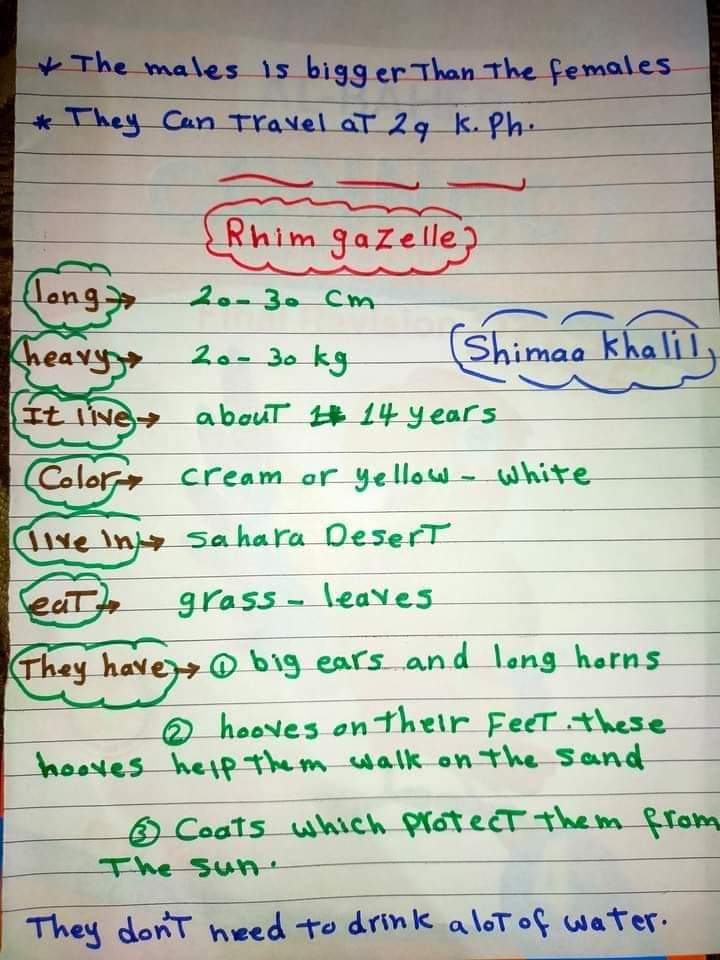 * The males is bigger Than The females
* They Can Travel aT 29 K.Ph.
Rhim gazelle
long → 20-30 Cm
heavy → 20-30 kg
Shimaa Khalil
It live → about 14 years
Color → cream or yellow - white
live in → sahara Desert
eat → grass - leaves
They have → ① big ears and long horns
② hooves on their Feet. these
hooves help them walk on the sand
③ Coats which protect them from
The sun.
They don't need to drink a lot of water.